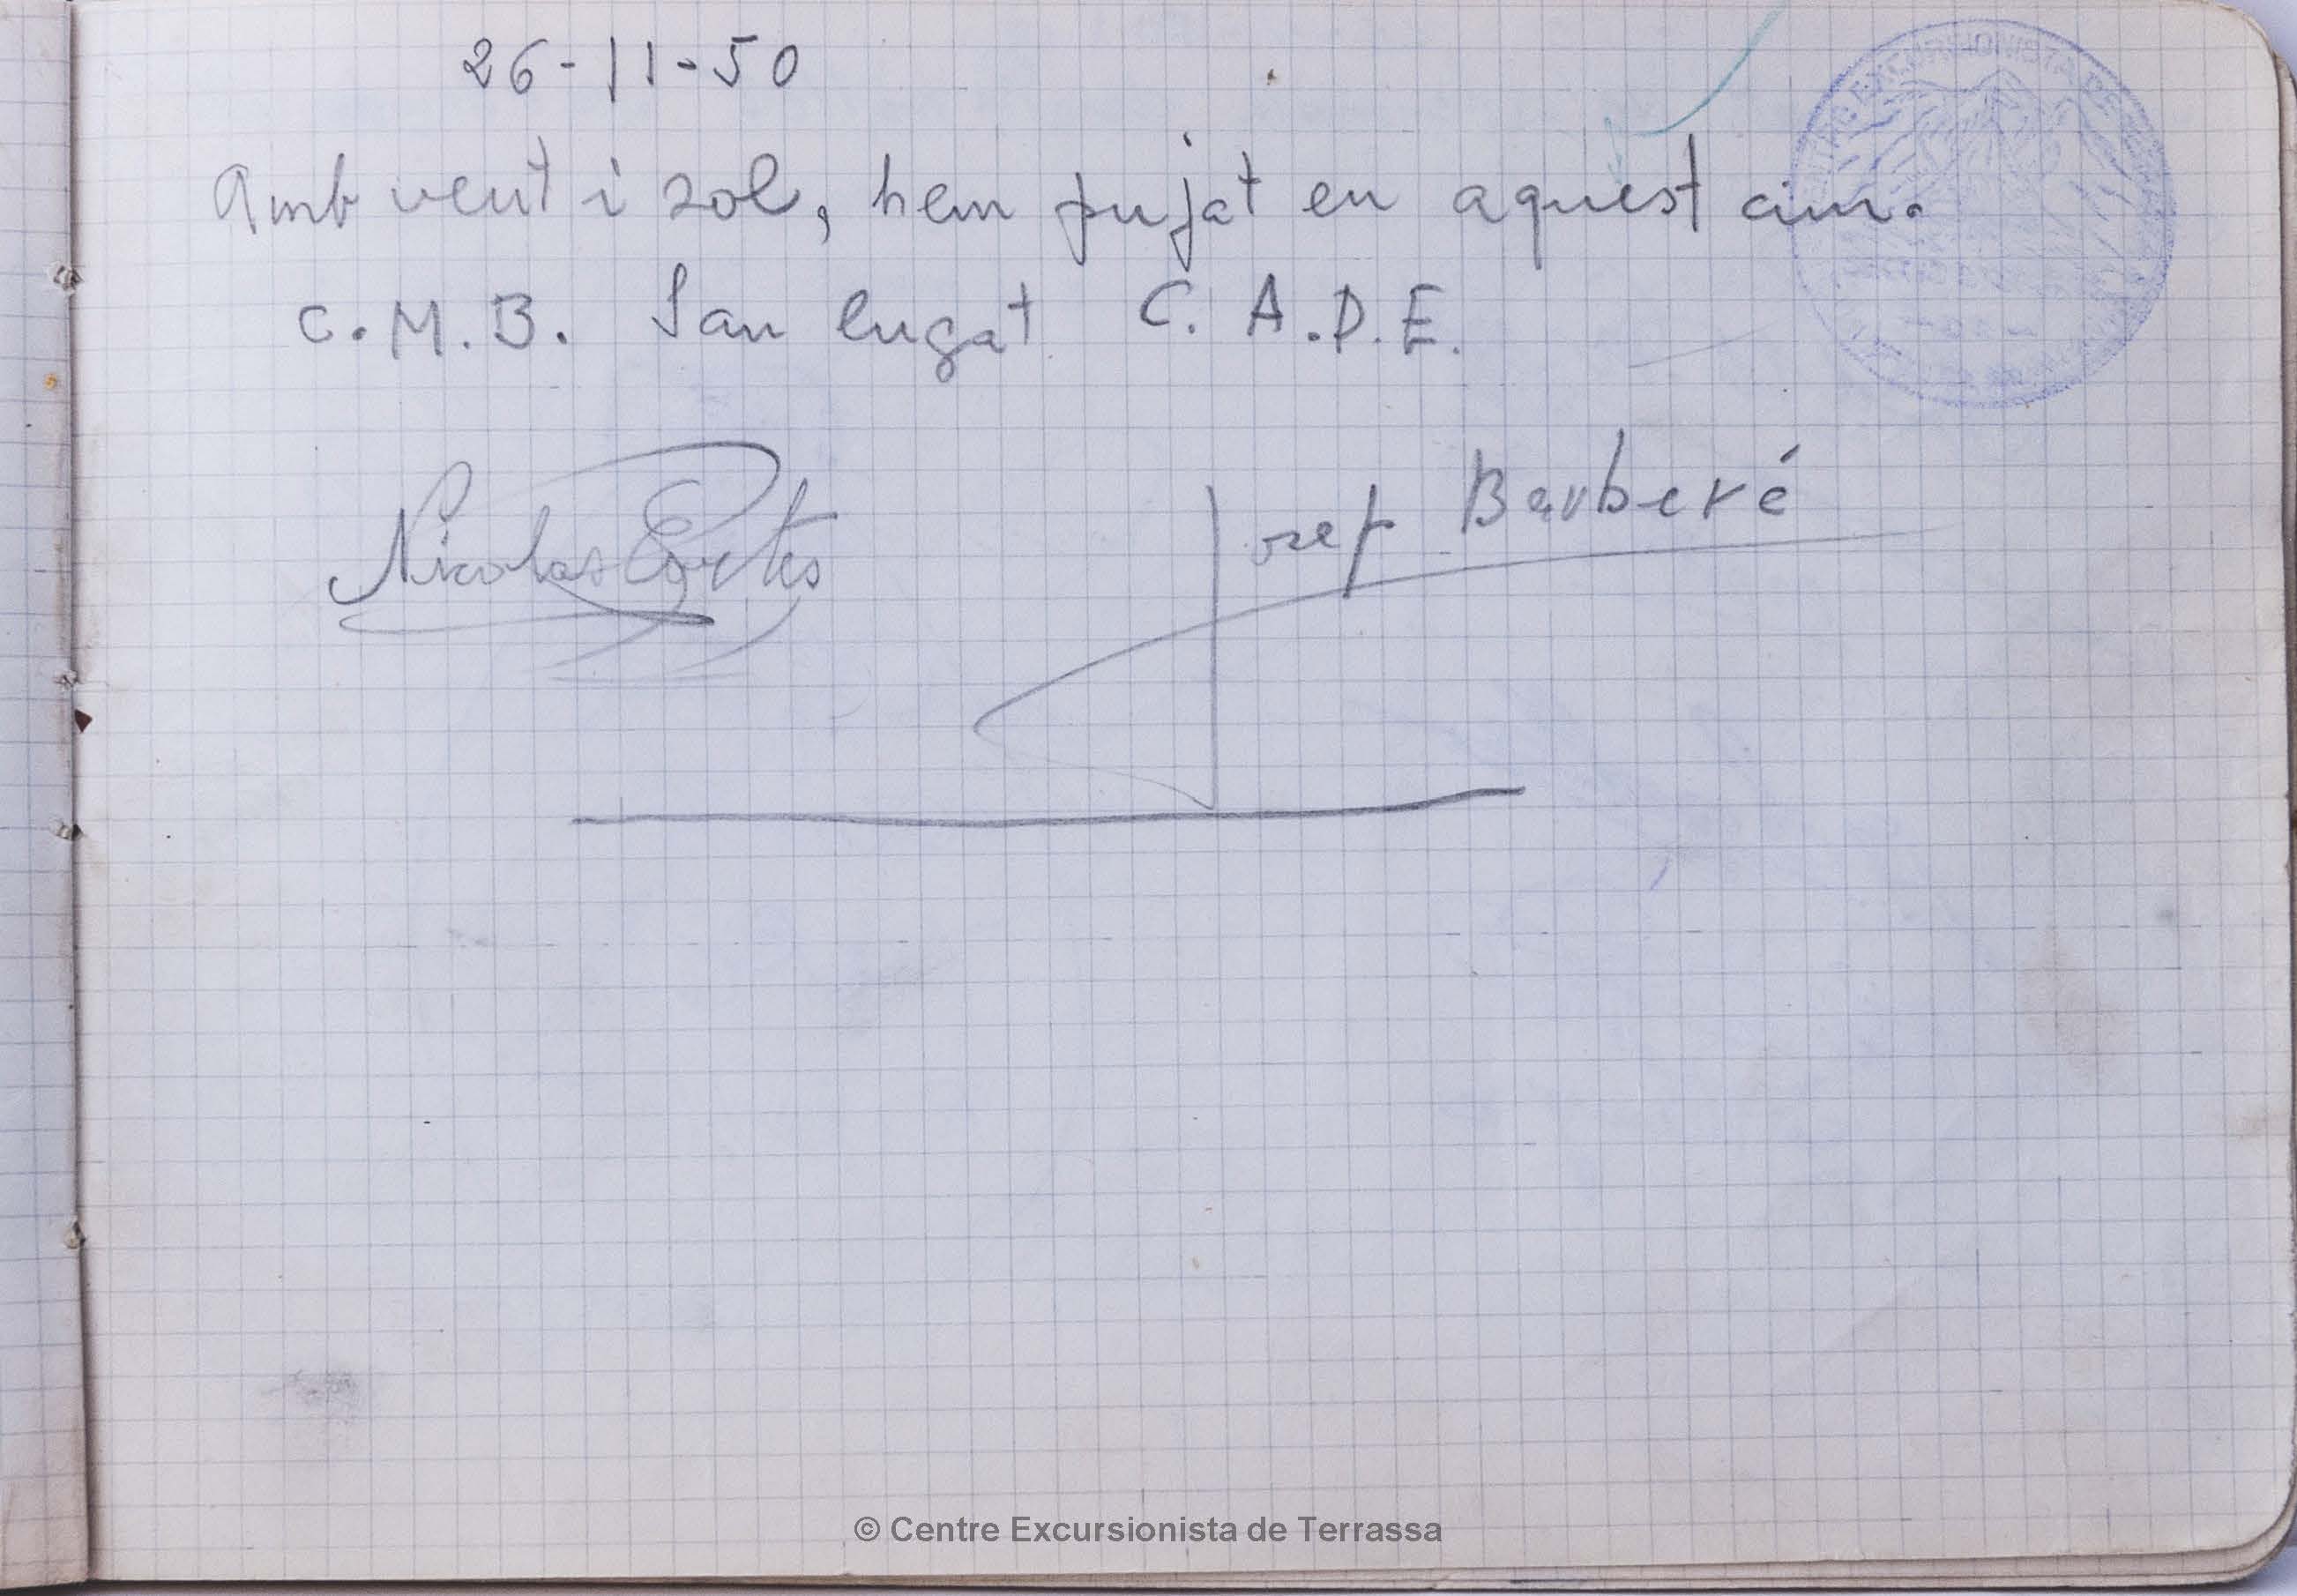 26-11-50
CENTRE EXCURSIONISTA DE
Amb vent i sol, hem pujat en aquest cim.
C.M.B. San Cugat C.A.D.E.
Nicolas Cortes
Josep Barberé
© Centre Excursionista de Terrassa